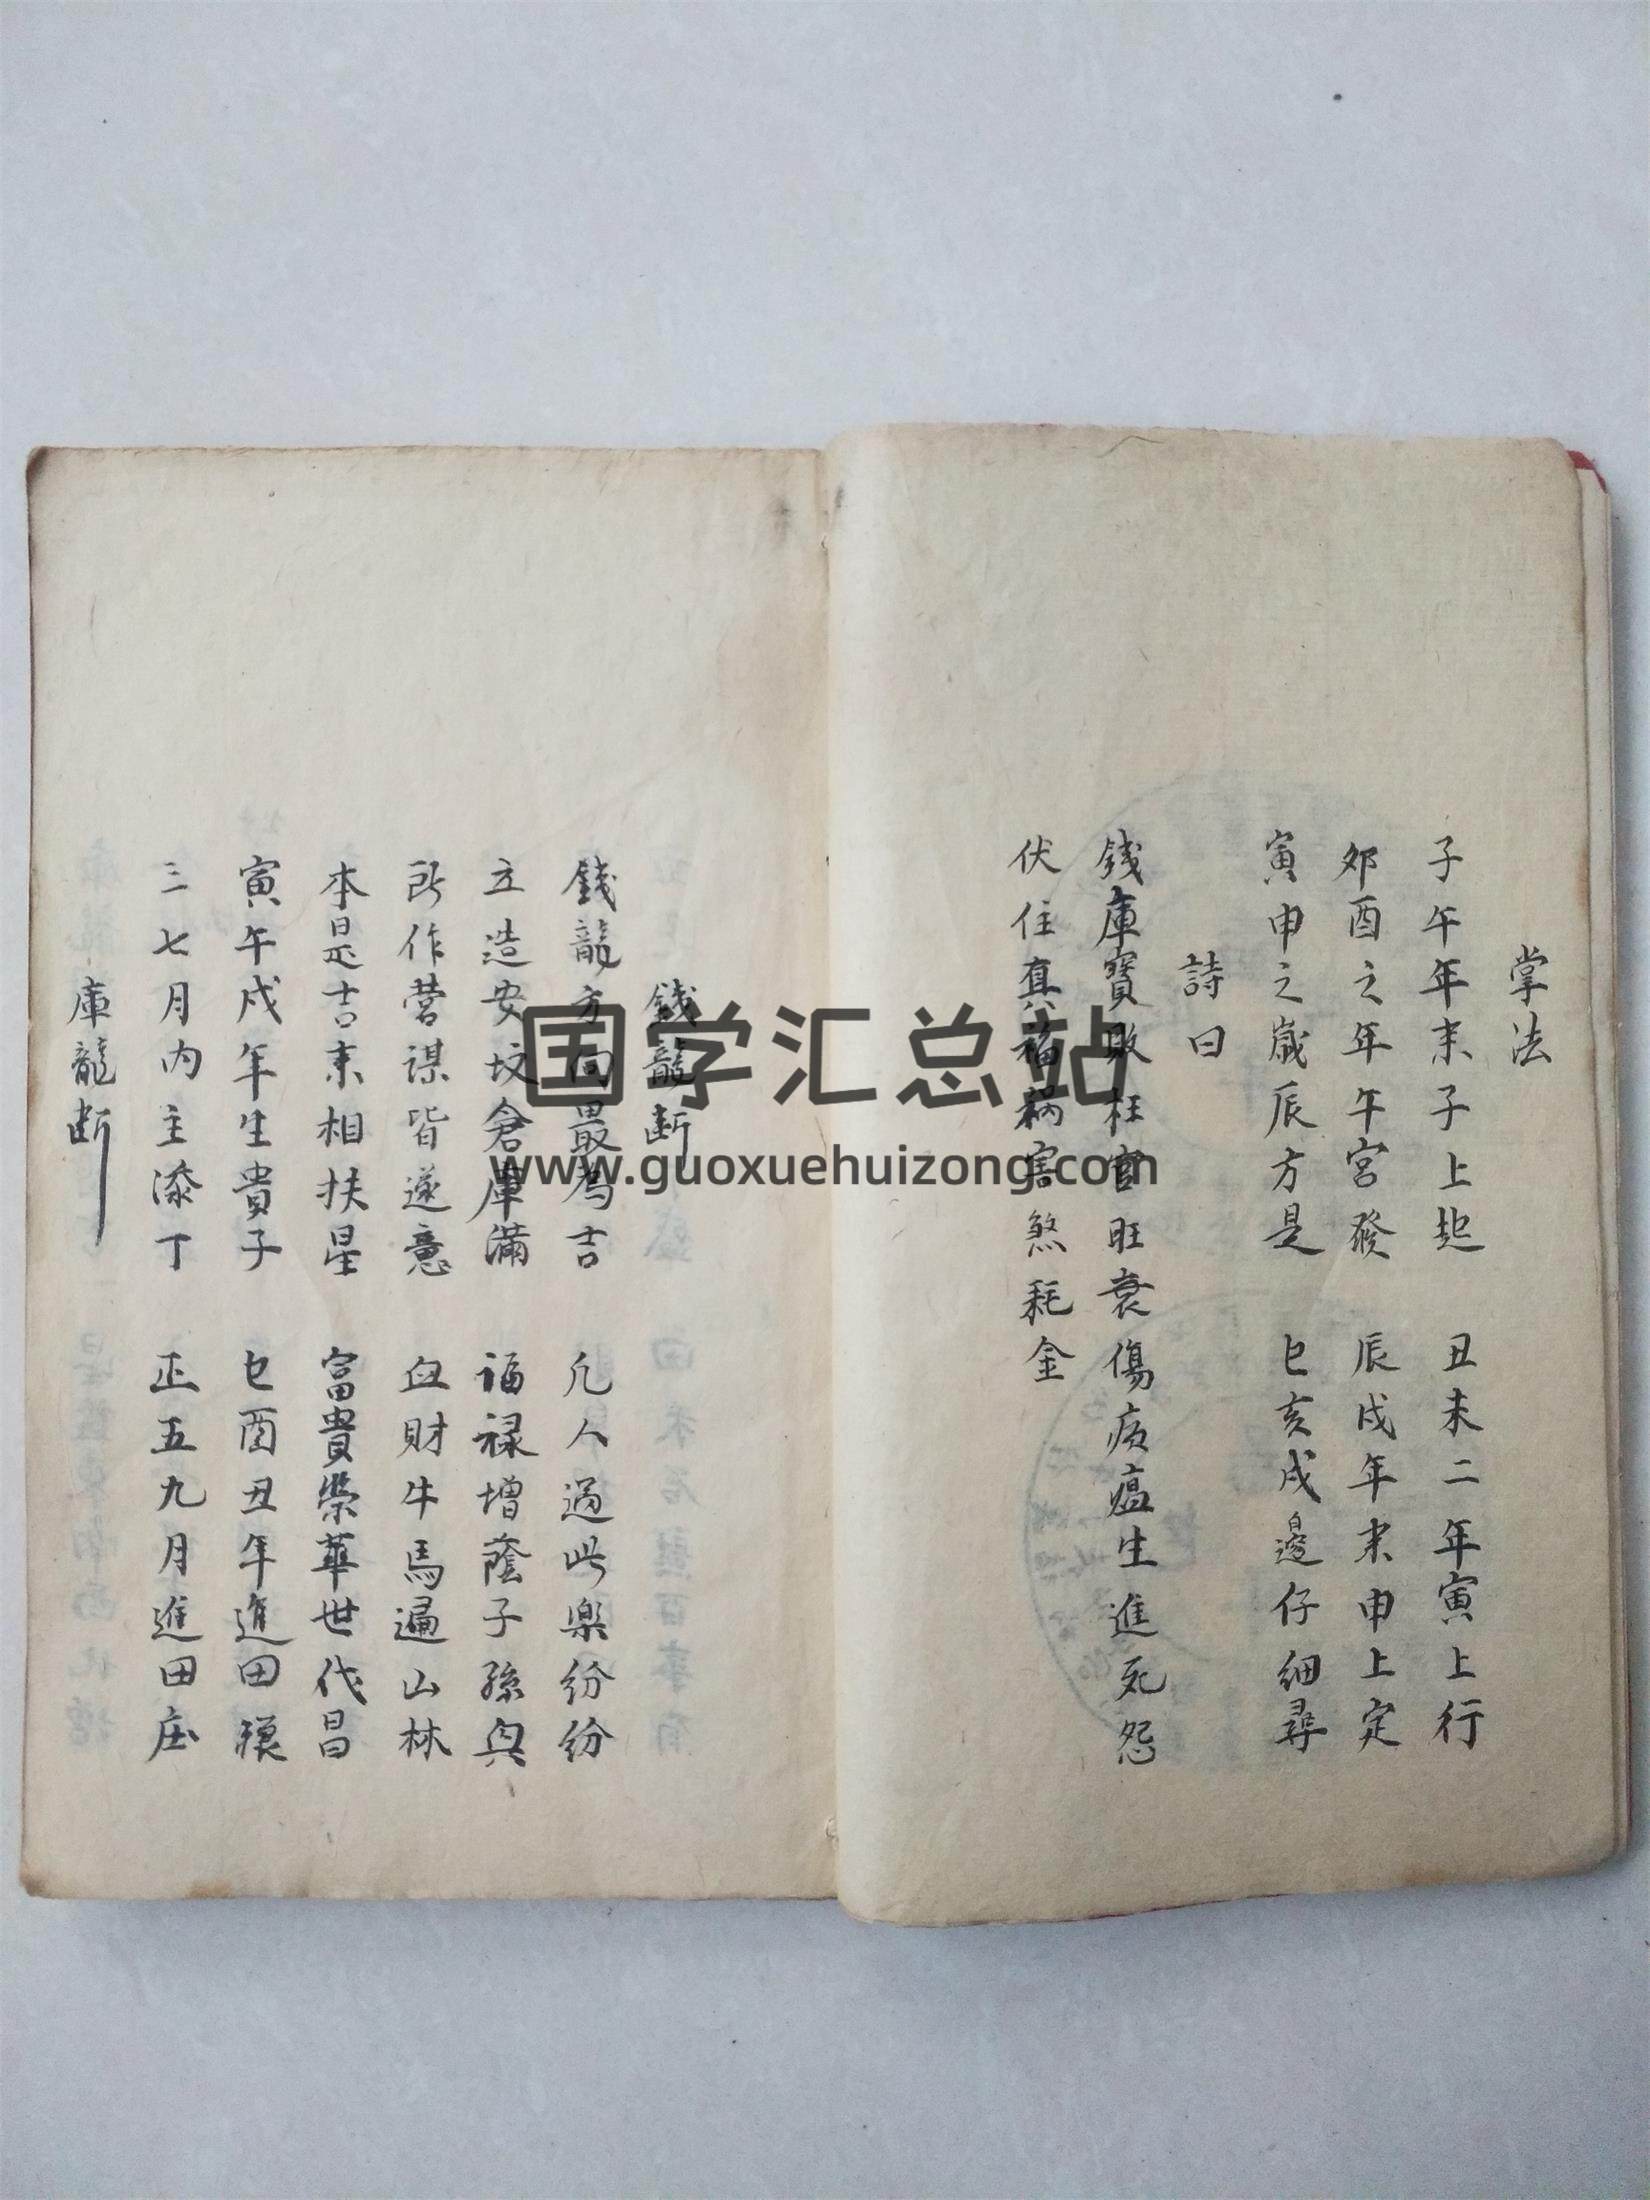 掌法
子午年来子上起　丑未二年寅上行
卯酉之年午宮發　辰戌年来申上定
寅申之歲辰方是　巳亥戌邊仔細尋
詩曰
錢庫寶敗枉官旺衰傷病瘟生進死怨
伏住真福禍害煞耗金
錢龍断
錢龍方向最為吉　凡人遇此樂纷纷
立造安坟倉庫满　福禄增蔭子孫興
所作营谋皆遂意　血財牛馬遍山林
本是吉来相扶星　富貴榮華世代昌
寅午戌年生貴子　巳酉丑年進田
三七月内主添丁　正五九月進田庄
庫龍断
国学汇总站
www.guoxuehuizong.com